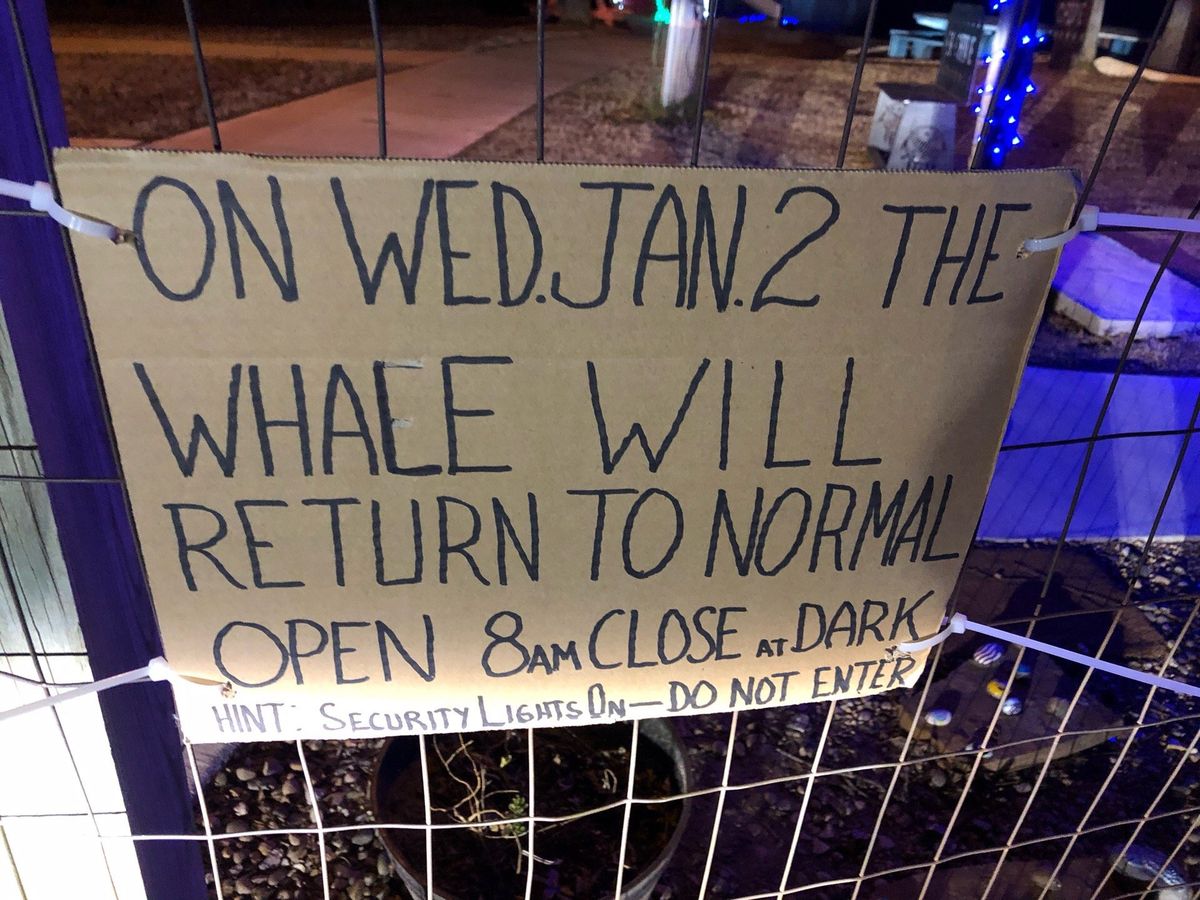 ON WED. JAN. 2 THE
WHALE WILL
RETURN TO NORMAL
OPEN 8AM CLOSE AT DARK
HINT: SECURITY LIGHTS ON — DO NOT ENTER